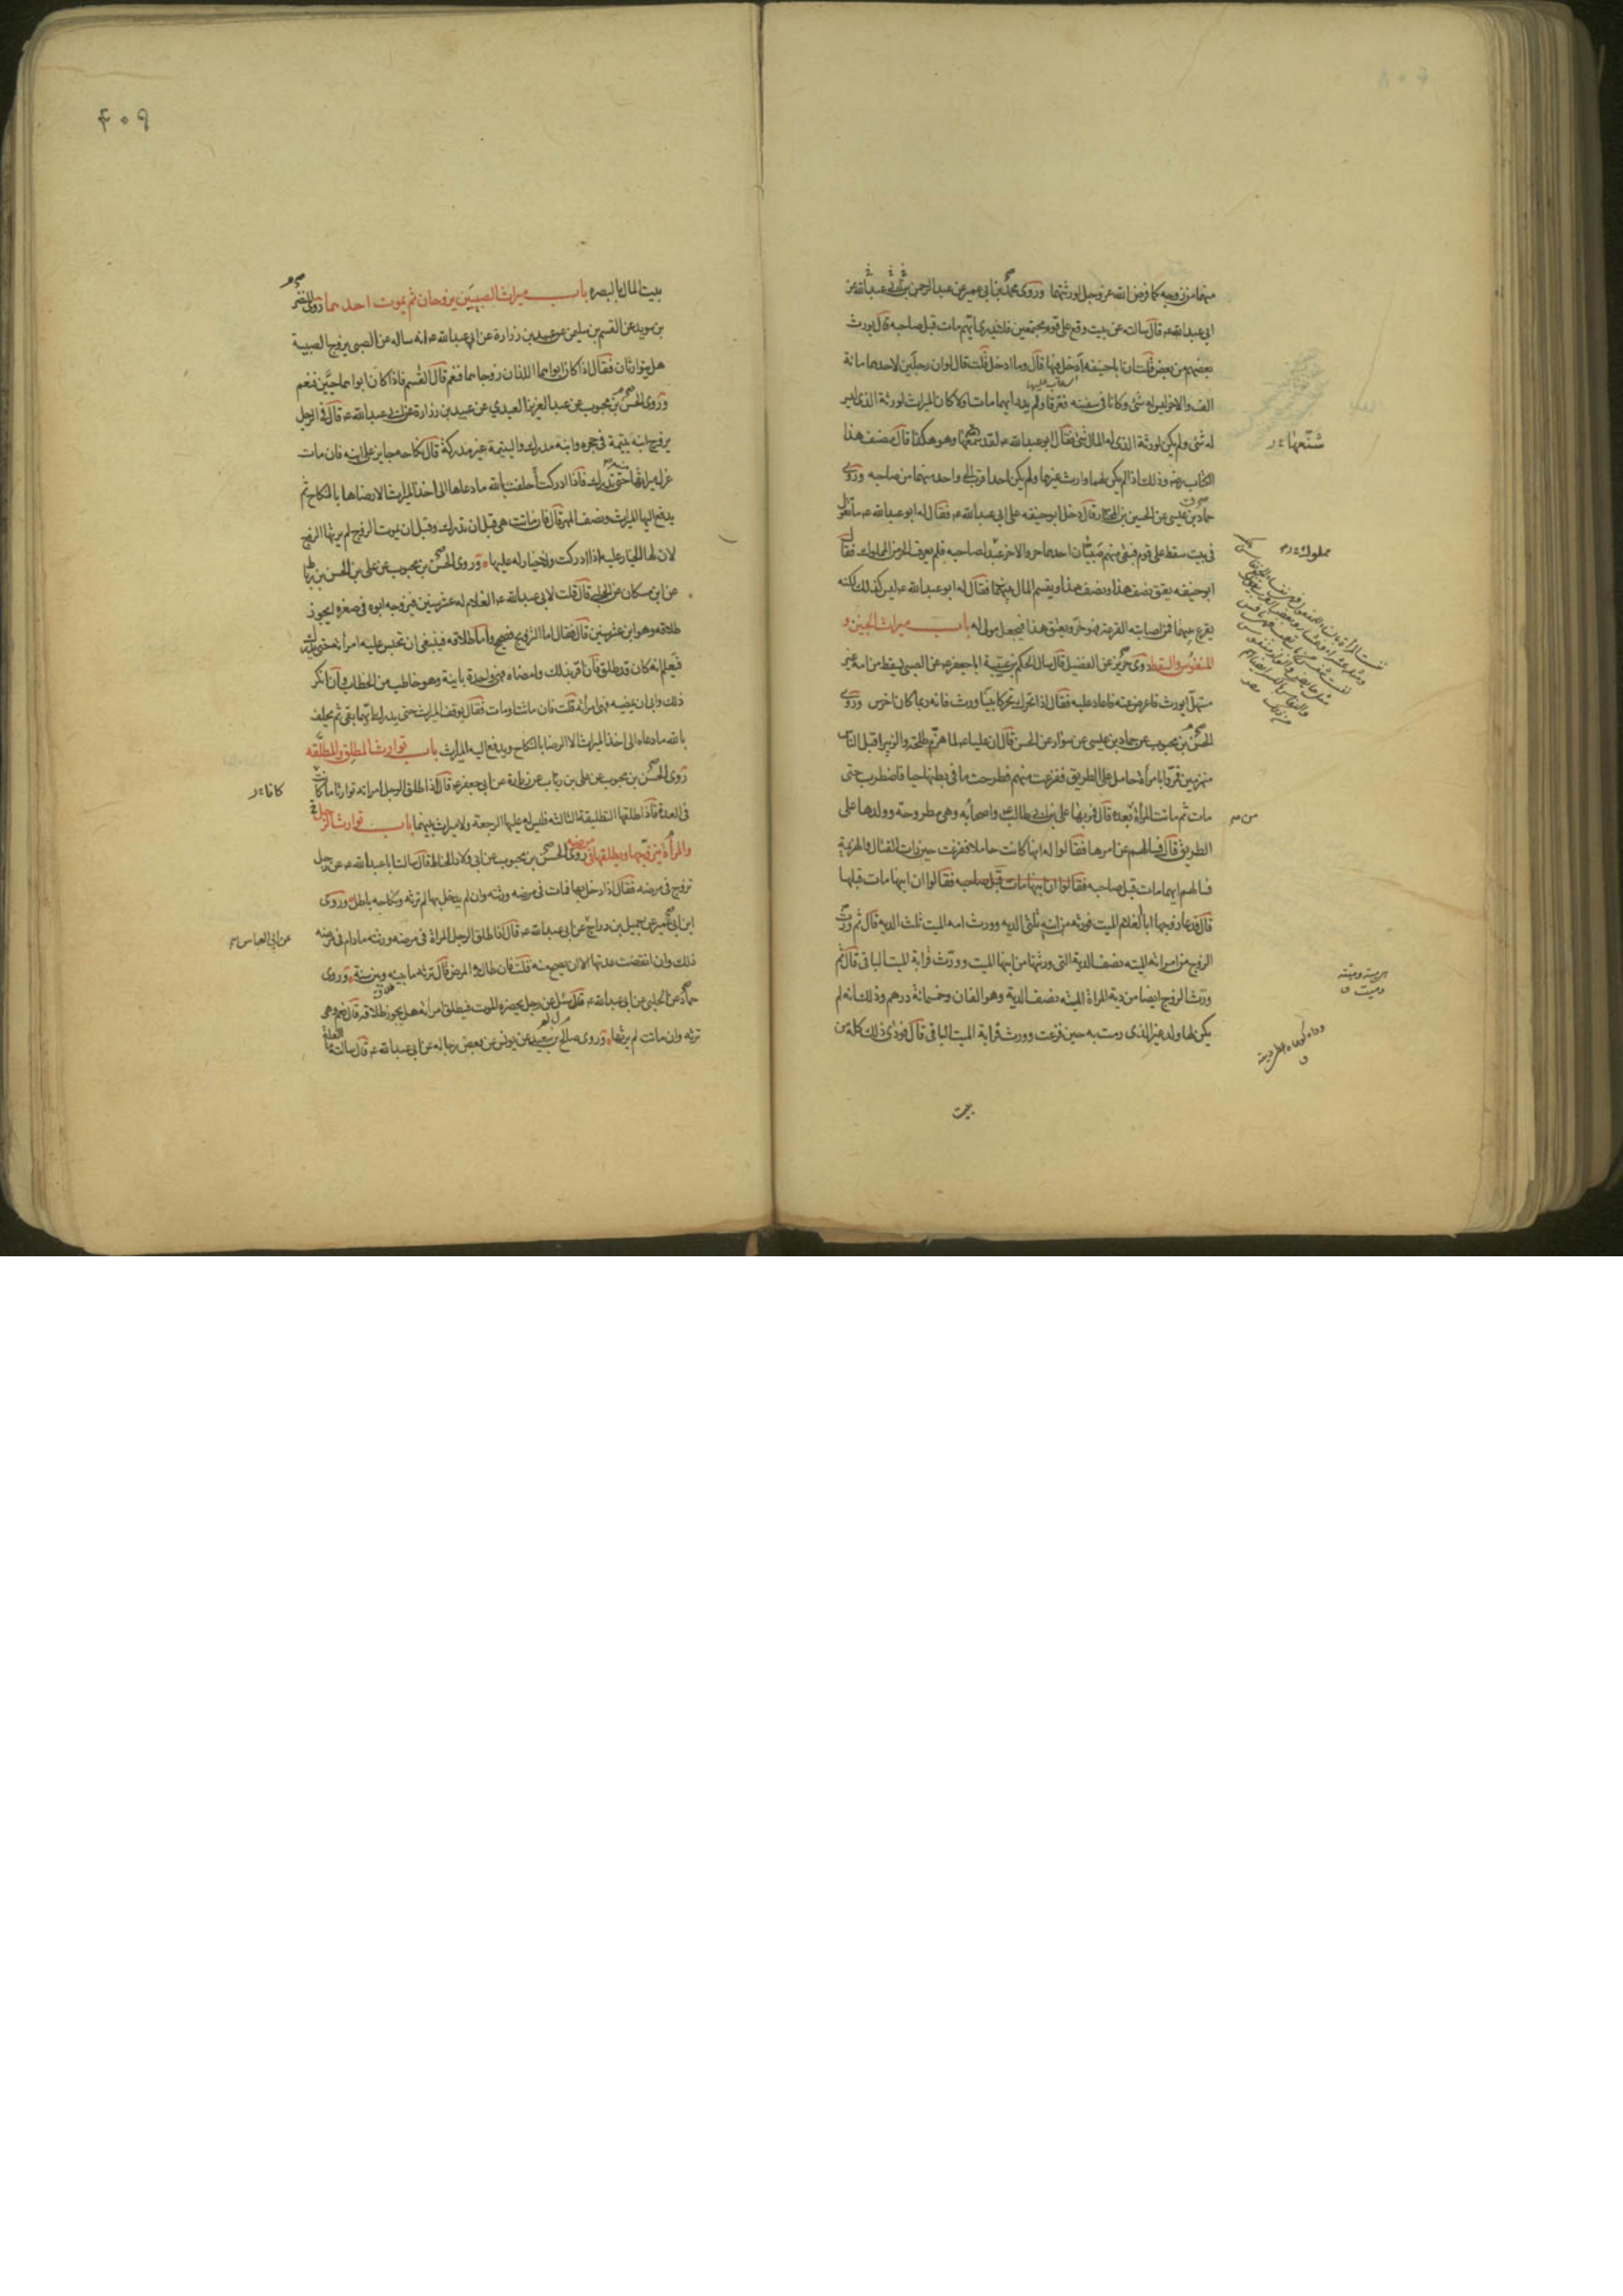 منهما من زوجه كما فرض الله عز وجل لورثتهما وروى محمد بن ابي عمير عن عبد الرحمن عن
ابي عبد الله ع قال سالته عن بيت وقع على قوم مجتمعين فلا يدرى ايهم مات قبل صاحبه قال يورث
بعضهم من بعض قلت ان ابا حنيفه ادخل فيها قال وما ادخل قلت قال لو ان رجلين لاحدهما مائة
الف والاخر ليس له شئ وكانا فى سفينه فغرقا ولم يدر ايهما مات اولا كان الميراث لورثة الذى ليس
له شئ ولم يكن لورثة الذى له المال شئ فقال ابو عبد الله ع لقد سمعها وهو هكذا قال مصنف هذا
الكتاب رض وذلك اذا لم يكن لهما وارث غيرهما ولم يكن احد اقرب الى واحد منهما من صاحبه وروى
حماد بن عيسى عن الحسين بن المختار قال دخل ابو حنيفه على ابى عبد الله ع فقال له ابو عبد الله ع ما تقول
فى بيت سقط على قوم فبقى منهم صبيان احدهما حر والاخر عبد لصاحبه فلم يعرف الحر من المملوك فقال
ابو حنيفه يعتق نصف هذا ونصف هذا ويقسم المال بينهما فقال له ابو عبد الله ع ليس كذلك لكنه
يقرع بينهما فمن اصابته القرعة فهو حر ويعتق هذا فيجعل مولى له باب ميراث الجنين و
المنفوس والسقط روى حريز عن الفضيل قال سال الحكم بن عتيبة ابا جعفر ع عن الصبى يسقط من امه غير
مستهل ايورث فاعرض عنه فاعاد عليه فقال اذا تحرك تحركا بينا ورث فانه ربما كان اخرس وروى
الحسن بن محبوب عن حماد بن عيسى عن سوار عن الحسن قال ان عليا ع لما هزم طلحة والزبير اقبل الناس
منهزمين فمروا بامراة حامل على الطريق ففزعت منهم فطرحت ما فى بطنها حيا فاضطرب حتى
مات ثم ماتت المراة بعده قال فمر بها على بن ابى طالب ع واصحابه وهى مطروحة وولدها على
الطريق قال فسالهم عن امرها فقالوا له انها كانت حاملا ففزعت حين رات القتال والهزيمة
فسالهم ايهما مات قبل صاحبه فقالوا ان ابنها مات قبل صاحبه فقالوا ان ابنها مات قبلها
قال فدعا زوجها ابا الغلام الميت فورثه من ابنه ثلثى الديه وورث امه الميت ثلث الديه قال ثم ورث
الزوج من امراته الميته نصف الدية التى ورثتها من ابنها الميت وورث قرابة الميت الباقى قال ثم
ورث الزوج ايضا من دية المراة الميته نصف الدية وهو الفان وخمسمائة درهم وذلك انه لم
يكن لها ولد غير الذى رمت به حين فزعت وورث قرابة الميت الباقى قال فودى ذلك كله من
بيت
شنعها
مملوك
من
٤٠٩
بيت المال بالبصره باب ميراث الصبيين يزوجان ثم يموت احدهما روى النضر
بن سويد عن القسم بن سليمن عن عبيد بن زرارة عن ابى عبد الله ع انه ساله عن الصبى يزوج الصبية
هل يتوارثان فقال اذا كان ابواهما اللذان زوجاهما فنعم قال القسم فاذا كان ابواهما حيين فنعم
وروى الحسن بن محبوب عن عبد العزيز العبدى عن عبيد بن زرارة عن ابى عبد الله ع قال فى الرجل
يزوج ابنه يتيمة فى حجره وابنه مدرك واليتيمة غير مدركة قال نكاحه جايز على ابنه فان مات
عزل ميراثها حتى تدرك فاذا ادركت احلفت بالله ما دعاها الى اخذ الميراث الا رضاها بالنكاح ثم
يدفع اليها الميراث ونصف المهر قال فان ماتت هى قبل ان تدرك وقبل ان يموت الزوج لم يرثها الزوج
لان لها الخيار عليه اذا ادركت ولا خيار له عليها وروى الحسن بن محبوب عن على بن الحسن بن رباط
عن ابن مسكان عن الحلبى قال قلت لابى عبد الله ع الغلام له عشر سنين فيزوجه ابوه فى صغره ايجوز
طلاقه وهو ابن عشر سنين قال فقال اما التزويج فصحيح واما طلاقه فينبغى ان تحبس عليه امراته حتى يدرك
فيعلم انه كان قد طلق فان اقر بذلك وامضاه فهى واحدة باينة وهو خاطب من الخطاب وان انكر
ذلك وابى ان يمضيه فهى امراته قلت فان ماتت او مات فقال يوقف الميراث حتى يدرك ايهما بقى ثم يحلف
بالله ما دعاه الى اخذ الميراث الا الرضا بالنكاح ويدفع اليه الميراث باب توارث المطلق والمطلقه
روى الحسن بن محبوب عن على بن رئاب عن زرارة عن ابى جعفر ع قال اذا طلق الرجل امراته توارثا ما كانت
فى العدة فاذا طلقها التطليقة الثالثه فليس له عليها الرجعة ولا ميراث بينهما باب توارث الرجل
والمراة يتزوجها ويطلقها فى مرضه روى الحسن بن محبوب عن ابى ولاد الحناط قال سالت ابا عبد الله ع عن رجل
تزوج فى مرضه فقال اذا دخل بها فمات فى مرضه ورثته وان لم يدخل بها لم ترثه ونكاحه باطل وروى
ابن ابى عمير عن جميل بن دراج عن ابى عبد الله ع قال اذا طلق الرجل المراة فى مرضه ورثته ما دام فى مرضه
ذلك وان انقضت عدتها الا ان يصح منه قلت فان طال به المرض قال ترثه ما بينه وبين سنة وروى
حماد عن الحلبى عن ابى عبد الله ع قال سئل عن رجل يحضره الموت فيطلق امراته هل يجوز طلاقه قال نعم وهى
ترثه وان ماتت لم يرثها وروى صالح بن سعيد عن يونس عن بعض رجاله عن ابى عبد الله ع قال سالته ما
العلة
كانا
عن ابى العباس